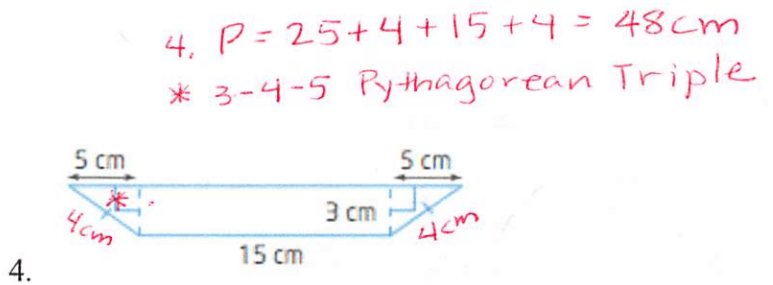 4. P = 25 + 4 + 15 + 4 = 48 cm
* 3-4-5 Pythagorean Triple
5 cm
5 cm
*
3 cm
4cm
4cm
15 cm
4.